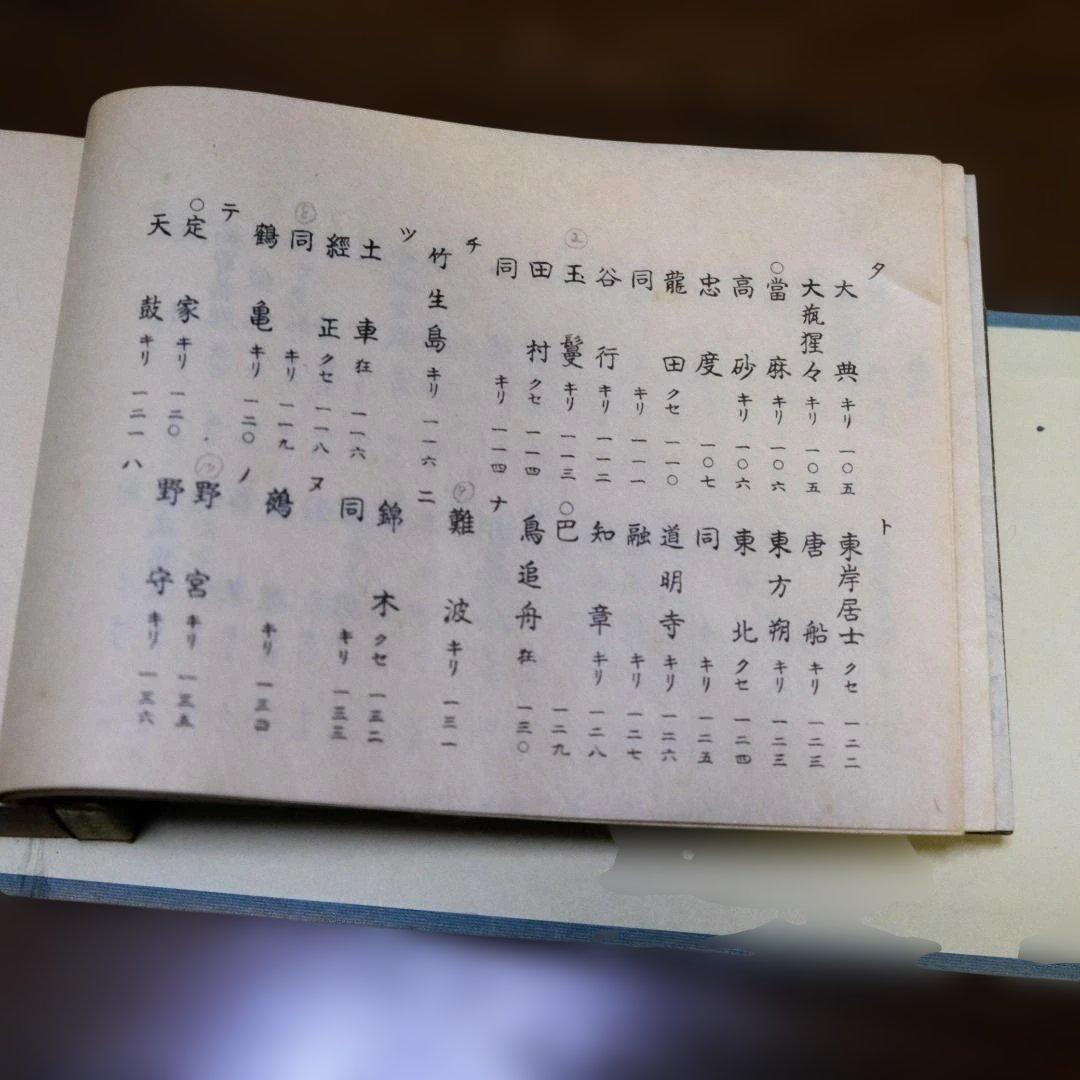 タ
大典 キリ 一〇五
大瓶猩々 キリ 一〇五
○當麻 キリ 一〇六
高砂 キリ 一〇六
忠度 一〇七
龍田 クセ 一一〇
同 キリ 一一一
谷行 キリ 一一二
②玉鬘 キリ 一一三
田村 クセ 一一四
同 キリ 一一四
チ
竹生島 キリ 一一六
ツ
土車 狂 一一六
經正 クセ 一一八
同 キリ 一一九
鶴亀 キリ 一二〇
テ
○定家 キリ 一二〇
天鼓 キリ 一二一
ト
東岸居士 クセ 一二二
唐船 キリ 一二三
東方朔 キリ 一二三
東北 クセ 一二四
同 キリ 一二五
道明寺 キリ 一二六
融 キリ 一二七
知章 キリ 一二八
○巴 一二九
鳥追舟 狂 一三〇
ナ
難波 キリ 一三一
ニ
錦木 クセ 一三二
同 キリ 一三三
ヌ
鵺 キリ 一三四
ノ
野宮 キリ 一三五
野守 キリ 一三六
ハ